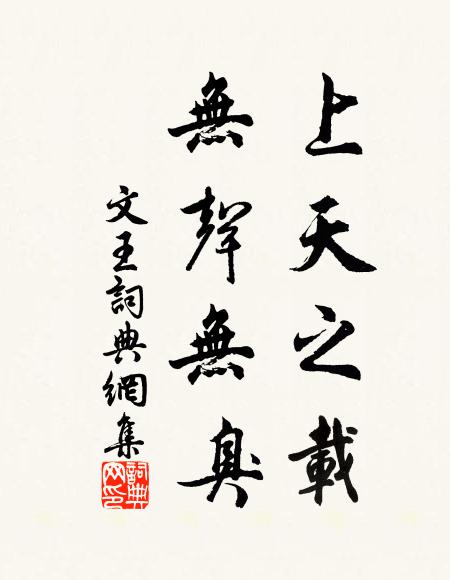 上天之載
無聲無臭
文王詞典網集
詞典网印